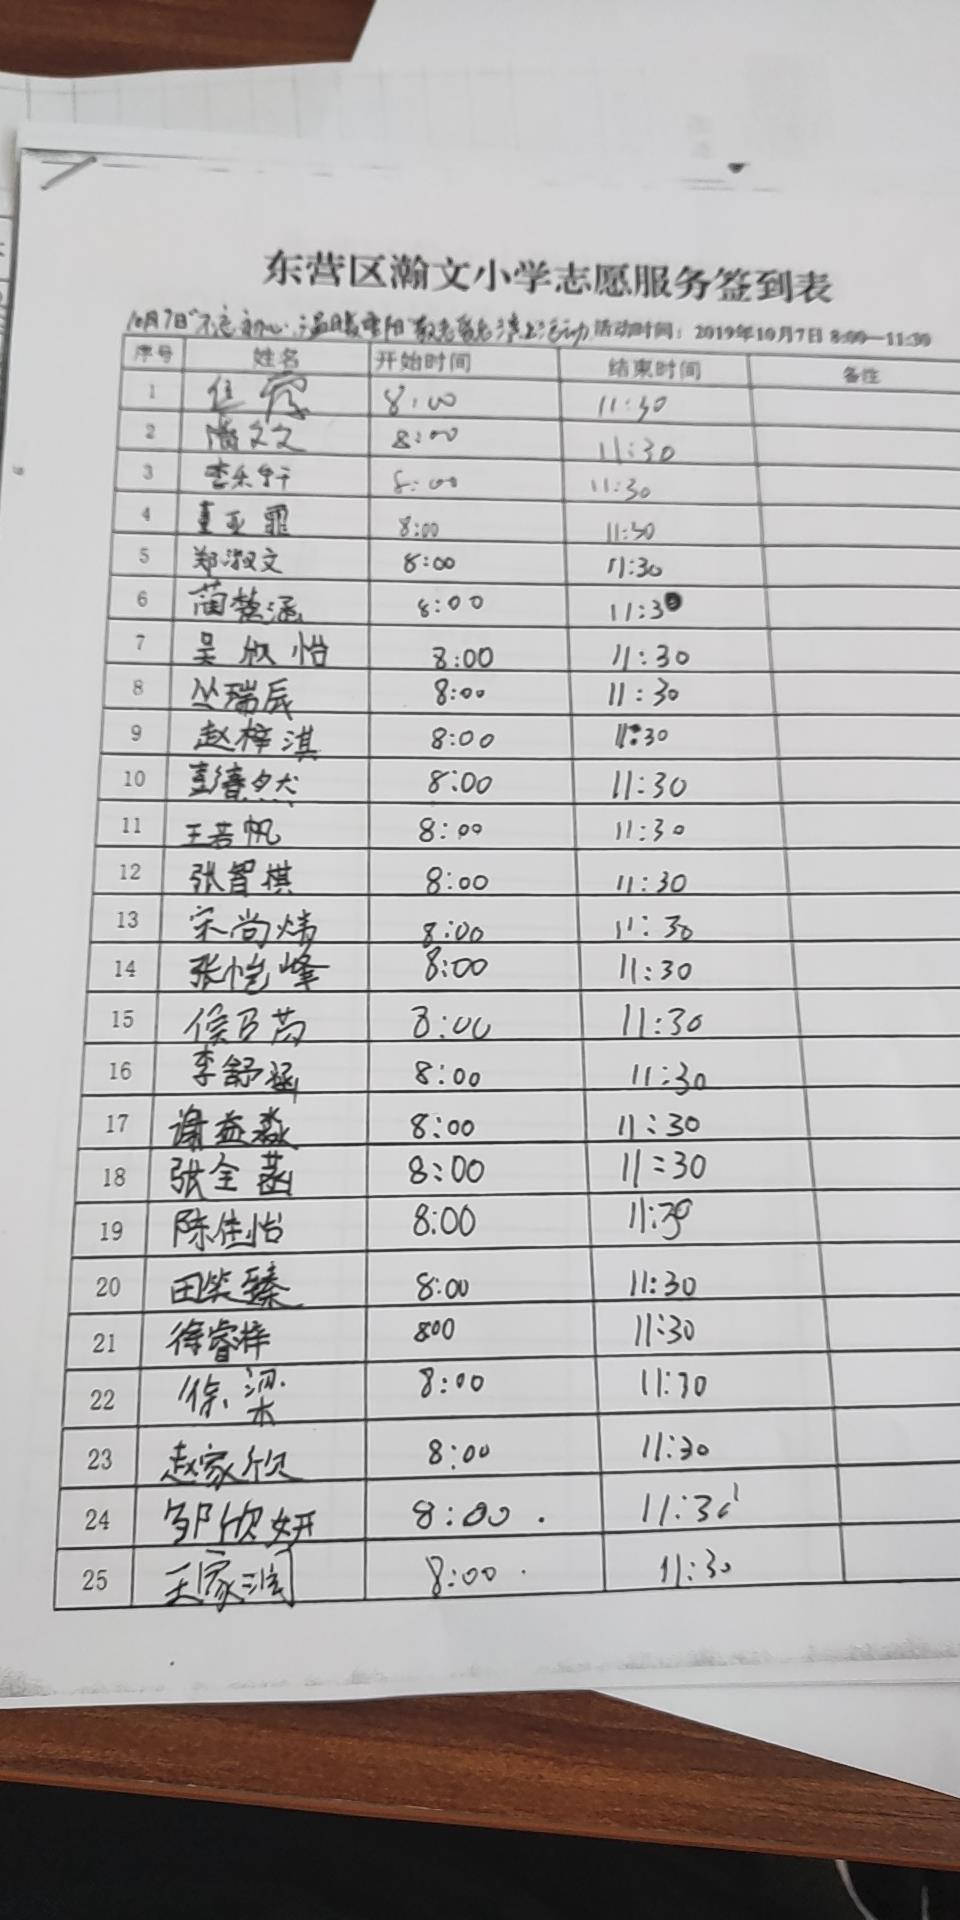 东营区瀚文小学志愿服务签到表
10月7日"不忘初心·温暖重阳"敬老爱老线上活动 活动时间：2019年10月7日 8:00—11:30
序号 姓名 开始时间 结束时间 备注
1 8:00 11:30
2 潘文文 8:00 11:30
3 李乐轩 8:00 11:30
4 董亚霏 8:00 11:30
5 郑淑文 8:00 11:30
6 蔺梦涵 8:00 11:30
7 吴欣怡 8:00 11:30
8 丛瑞辰 8:00 11:30
9 赵梓淇 8:00 11:30
10 8:00 11:30
11 王若帆 8:00 11:30
12 张智棋 8:00 11:30
13 宋尚炜 8:00 11:30
14 张恺峰 8:00 11:30
15 侯乃芮 8:00 11:30
16 李舒涵 8:00 11:30
17 谢益淼 8:00 11:30
18 张全菡 8:00 11:30
19 陈佳怡 8:00 11:30
20 田笑臻 8:00 11:30
21 徐睿梓 800 11:30
22 徐梁 8:00 11:30
23 赵家欣 8:00 11:30
24 邹欣妍 8:00 11:30
25 王家 8:00 11:30